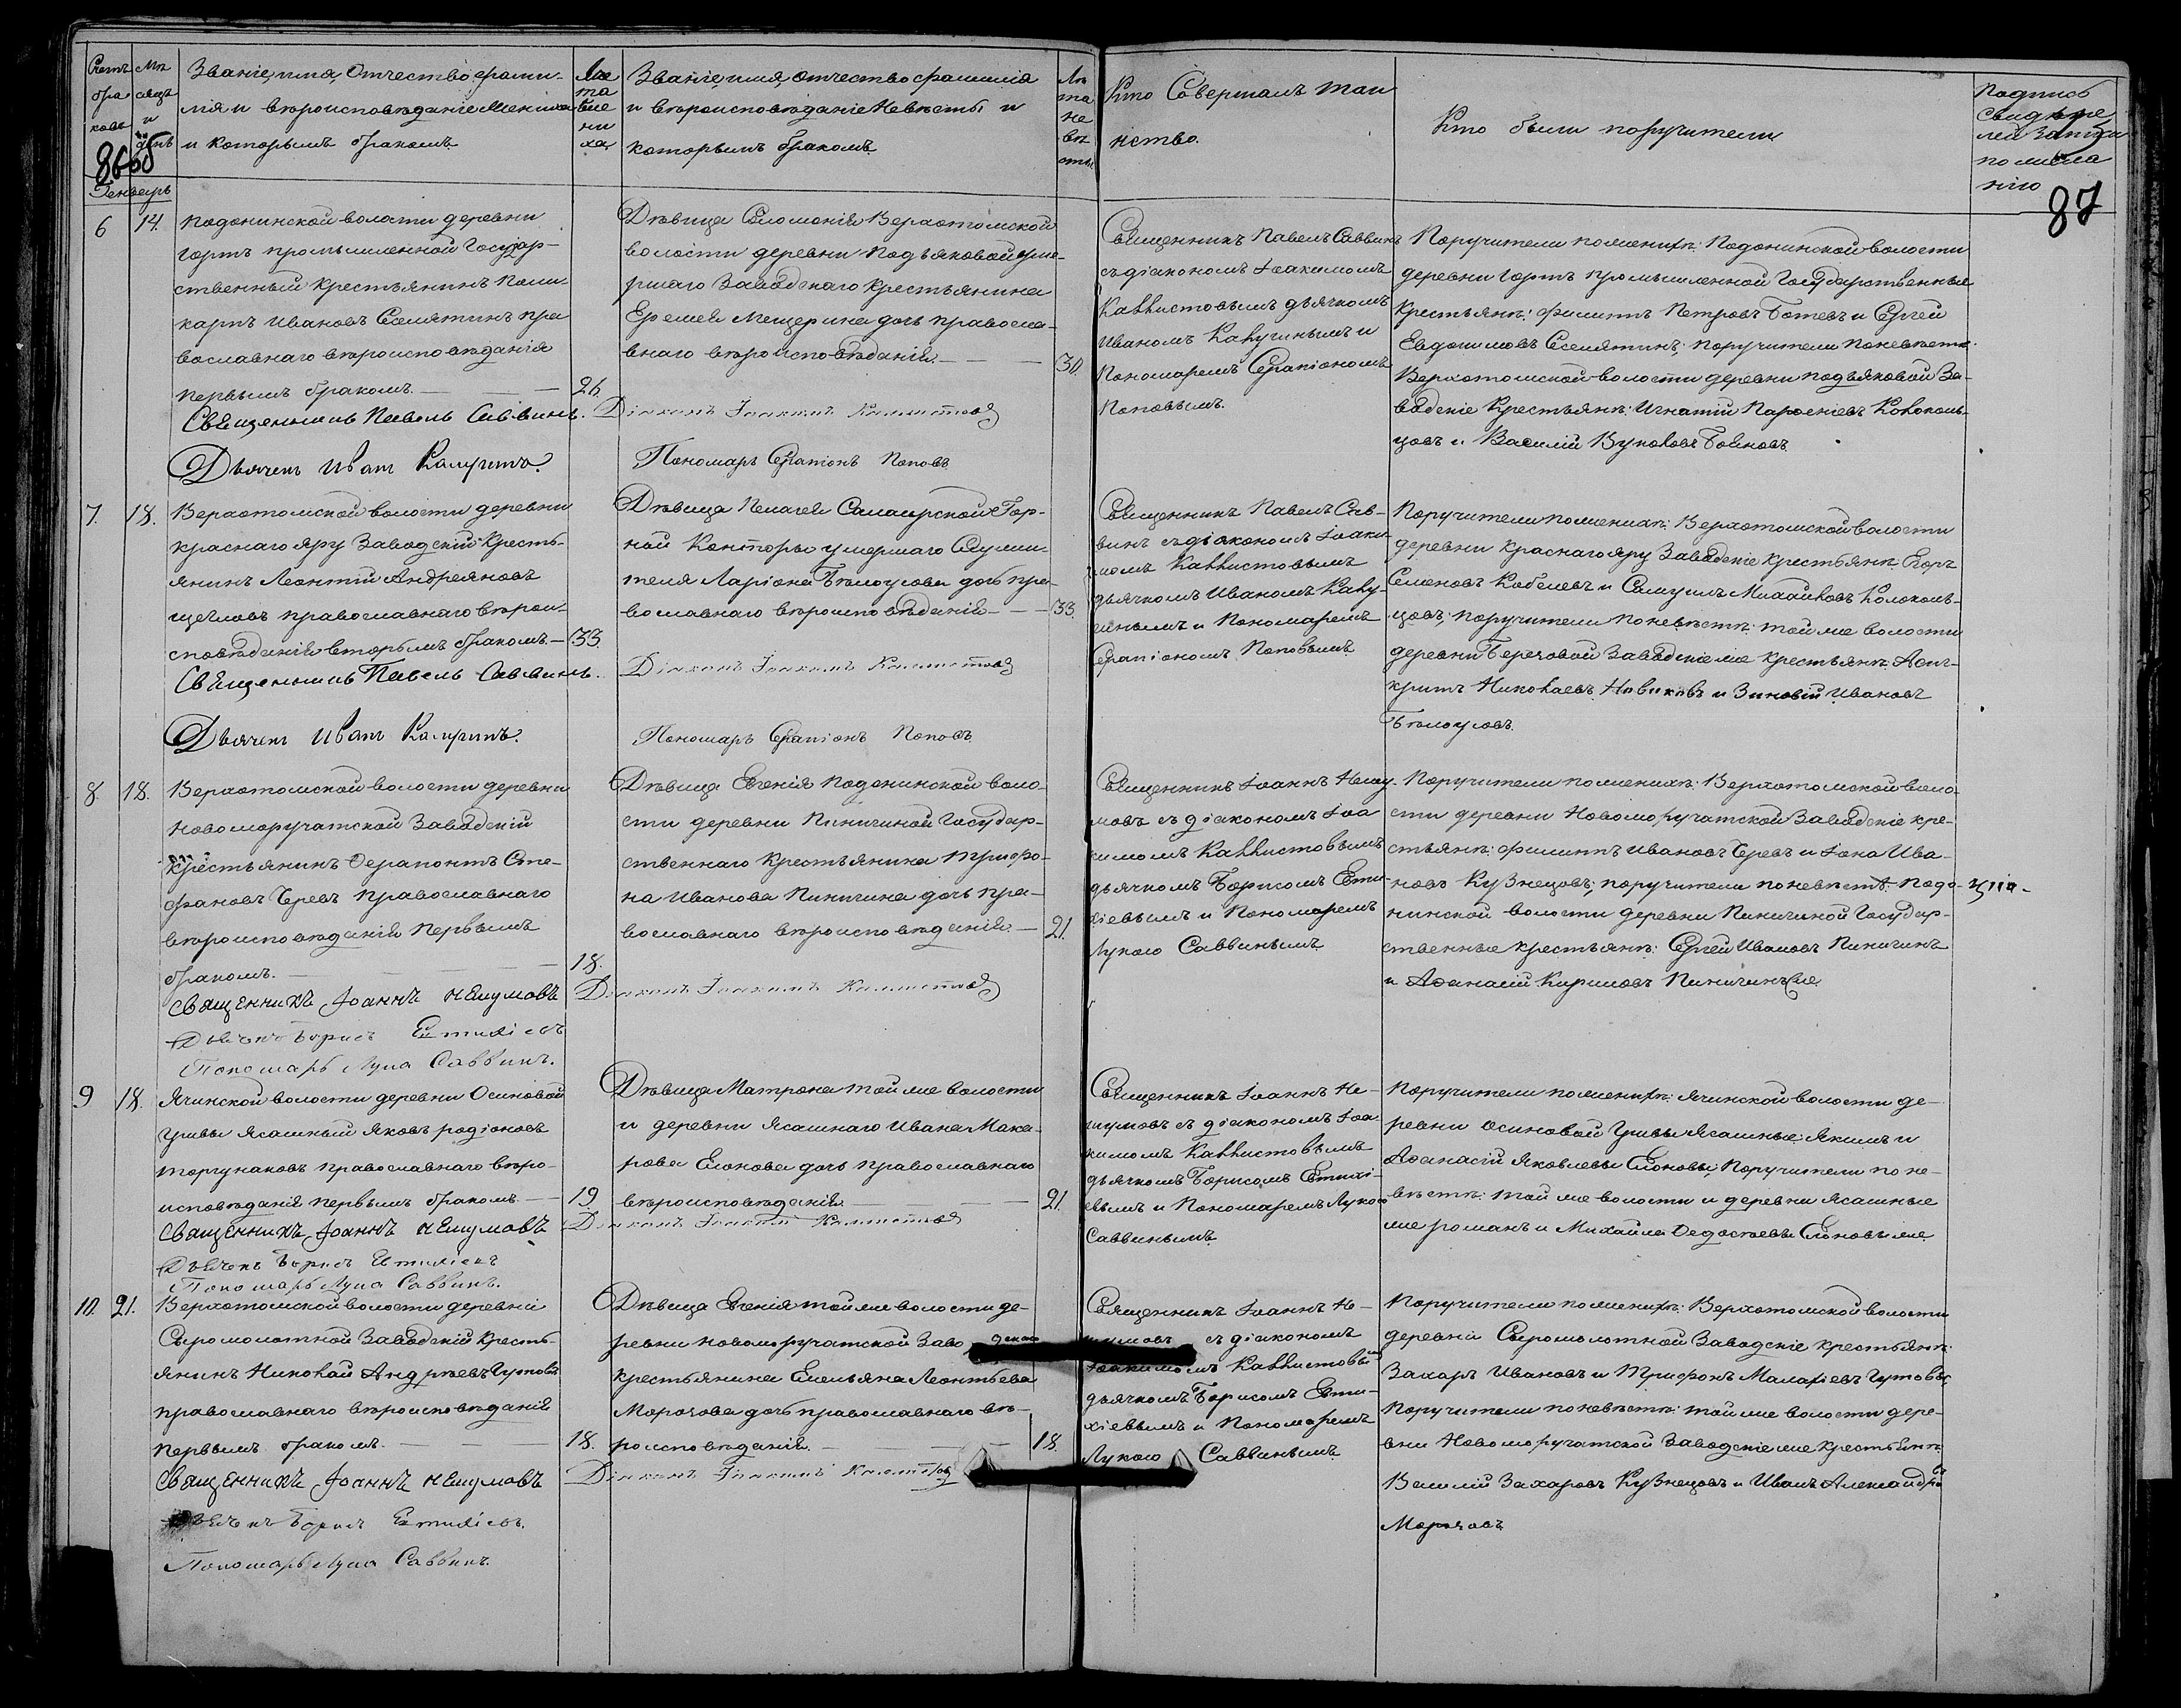 Счетъ бра ковъ
Мѣ сяцъ и день
Званіе, имя, Отчество, фами-
лія и вѣроисповѣданіе Жениха
и которымъ бракомъ.
Лѣ та Же ни ха,
Званіе, имя, отчество фамилія
и вѣроисповѣданіе Невѣсты и
которымъ бракомъ.
Лѣ та не вѣ сты
Кто Совершалъ таи
нство.
Кто были поручители
Подпись
Свидѣте
лей записи
по жела
нію
87
Генварь
6 14. Подонинской волости деревни
Гортъ промышленной Государ-
ственный крестьянинъ Поли-
карпъ Ивановъ Селятинъ пра
вославнаго вѣроисповѣданія
первымъ бракомъ. — 26.
Священникъ Павелъ Саввинъ.
Дьячекъ Иванъ Калугинъ.
Дѣвица Соломонія Верхотомской
волости деревни Подъяковой уме-
ршаго Заводскаго крестьянина
Еремея Мещерина дочь правосла-
внаго вѣроисповѣданія — 30.
Діаконъ Іоакимъ Каллистовъ
Пономарь Серапіонъ Поповъ
Священникъ Павелъ Саввинъ
съ діакономъ Іоакимомъ
Каллистовымъ дьячкомъ
Иваномъ Калугинымъ и
Пономаремъ Серапіономъ
Поповымъ.
Поручители по женихѣ: Подонинской волости
деревни Гортъ промышленной Государственные
Крестьянѣ: Филиппъ Петровъ Ботевъ и Сергей
Евдокимовъ Селятинъ; поручители по невѣстѣ
Верхотомской волости деревни подъяковой За-
водскіе Крестьянѣ: Игнатій Парѳеніевъ Колоколь-
цовъ и Василій Вуколовъ Боиновъ.
7. 18. Верхотомской волости деревни
краснаго яру Заводскій Кресть-
янинъ Леонтій Андреяновъ
Щегловъ православнаго вѣрои-
сповѣданія вторымъ бракомъ. — 33.
Священникъ Павелъ Саввинъ.
Дьячекъ Иванъ Калугинъ.
Дѣвица Пелагея Салаирской Гор-
ной Конторы умершаго Служи-
теля Ларіона Бѣлоусова дочь пра-
вославнаго вѣроисповѣданія — 33.
Діаконъ Іоакимъ Каллистовъ
Пономарь Серапіонъ Поповъ
Священникъ Павелъ Сав-
винъ съ діакономъ Іоаки-
момъ Каллистовымъ
дьячкомъ Иваномъ Калу-
гинымъ и Пономаремъ
Серапіономъ Поповымъ
Поручители по женихѣ: Верхотомской волости
деревни Краснаго яру Заводскіе Крестьянѣ Егоръ
Семеновъ Кобелевъ и Самуилъ Михайловъ Колоколь-
цовъ; поручители по невѣстѣ: той же волости
деревни Березовой Заводскіе же крестьянѣ: Асиг-
критъ Николаевъ Новиковъ и Зиновій Ивановъ
Бѣлоусовъ.
8. 18. Верхотомской волости деревни
Новоморучатской Заводскій
крестьянинъ Ѳерапонтъ Сте-
фановъ Черевъ Православнаго
вѣроисповѣданія первымъ
бракомъ. — 18.
Священникъ Іоаннъ Нешумовъ
Дьячекъ Борисъ Евтихіевъ
Пономарь Лука Саввинъ.
Дѣвица Евгенія Подонинской воло-
сти деревни Пиничиной Государ-
ственнаго Крестьянина Трифо-
на Иванова Пиничина дочь пра-
вославнаго вѣроисповѣданія — 21.
Діаконъ Іоакимъ Каллистовъ
Священникъ Іоаннъ Нешу-
мовъ съ діакономъ Іоа
кимомъ Каллистовымъ
дьячкомъ Борисомъ Евти-
хіевымъ и Пономаремъ
Лукою Саввинымъ
Поручители по женихѣ: Верхотомской воло-
сти деревни Новоморучатской Заводскіе кре-
стьянѣ: Филиппъ Ивановъ Черевъ и Іона Ива-
новъ Кузнецовъ; поручители по невѣстѣ: Подо-
нинской волости деревни Пиничиной Государ-
ственные крестьянѣ: Сергей Ивановъ Пиничинъ
и Аѳанасій Кириловъ Пиничинъ же
9 18. Ячинской волости деревни Осиновой
Гривы Ясашный Яковъ родіоновъ
торгунаковъ православнаго вѣро-
исповѣданія первымъ бракомъ — 19
Священникъ Іоаннъ Нешумовъ
Дьячекъ Борисъ Евтихіевъ
Пономарь Лука Саввинъ.
Дѣвица Матрона той же волости
и деревни Ясашнаго Ивана Мака-
рова Елонова дочь православнаго
вѣроисповѣданія — 21.
Діаконъ Іоакимъ Каллистовъ
Священникъ Іоаннъ Не-
шумовъ съ діакономъ Іоа-
кимомъ Каллистовымъ
дьячкомъ Борисомъ Евтихі-
евымъ и Пономаремъ Лукою
Саввинымъ
Поручители по женихѣ: Ячинской волости де-
ревни осиновой Гривы Ясашные: Якимъ и
Аѳанасій Яковлевы Елоновы; Поручители по не-
вѣстѣ: той же волости и деревни Ясашные
же романъ и Михайла Ѳедосѣевы Елоновы же
10. 21. Верхотомской волости деревни
Сыромолотной Заводскій Кресть-
янинъ Николай Андреевъ Гутовъ
православнаго вѣроисповѣданія
первымъ бракомъ. — 18.
Священникъ Іоаннъ Нешумовъ
Дьячекъ Борисъ Евтихіевъ.
Пономарь Лука Саввинъ.
Дѣвица Евгенія той же волости де-
ревни Новоморучатской Заводскаго
крестьянина Емельяна Леонтьева
Морозова дочь православнаго вѣ-
роисповѣданія. — 18.
Діаконъ Іоакимъ Каллистовъ
Священникъ Іоаннъ Не-
шумовъ съ діакономъ
Іоакимомъ Каллистовымъ
дьячкомъ Борисомъ Евти-
хіевымъ и Пономаремъ
Лукою Саввинымъ
Поручители по женихѣ: Верхотомской волости
деревни Сыромолотной Заводскіе крестьянѣ:
Захаръ Ивановъ и Трифонъ Малахіевъ Гутовы;
Поручители по невѣстѣ: той же волости дере-
вни Новоморучатской Заводскіе же крестьянѣ
Василій Захаровъ Кузнецовъ и Иванъ Александровъ
Морозовъ